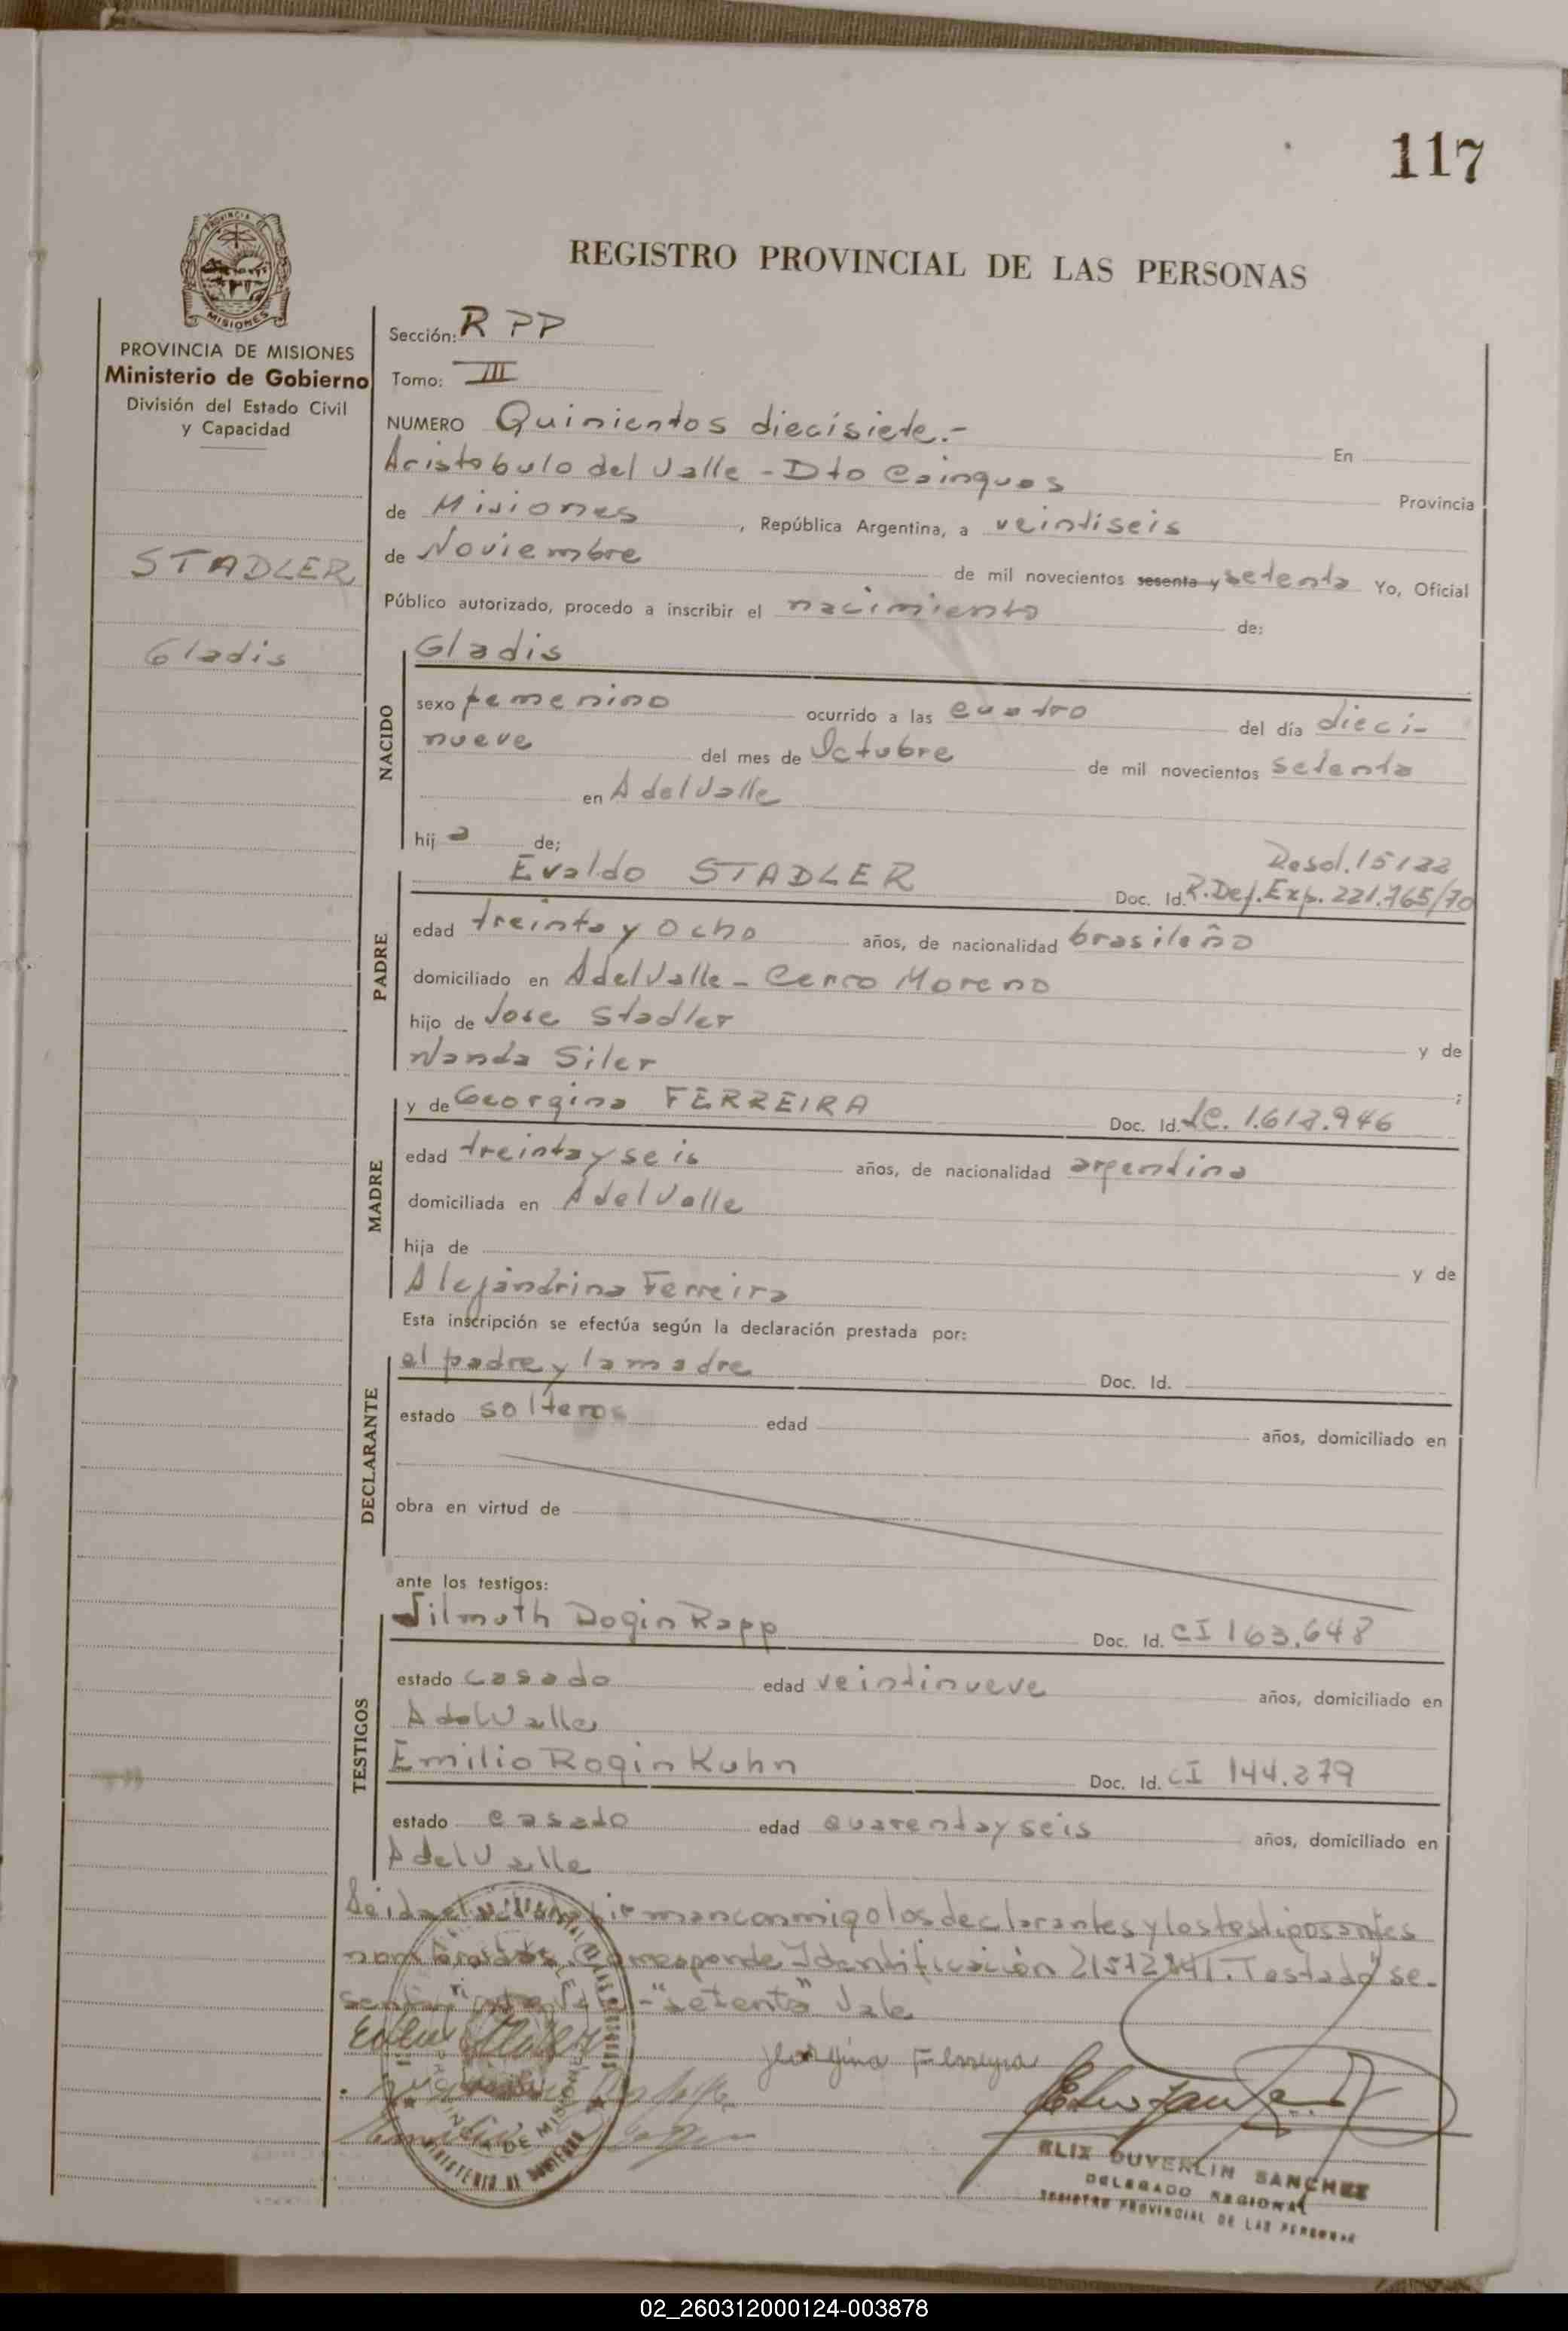 117
PROVINCIA
MISIONES
REGISTRO PROVINCIAL DE LAS PERSONAS
PROVINCIA DE MISIONES
Ministerio de Gobierno
División del Estado Civil
y Capacidad
STADLER
Gladis
Sección: R PP
Tomo: III
NUMERO Quinientos diecisiete.- En
Aristobulo del Valle - Dto Cainguas Provincia
de Misiones, República Argentina, a veintiseis
de Noviembre de mil novecientos sesenta y setenta Yo, Oficial
Público autorizado, procedo a inscribir el nacimiento de:
NACIDO
Gladis
sexo femenino ocurrido a las cuatro del día dieci-
nueve del mes de Octubre de mil novecientos setenta
en A del Valle
hija de;
Resol. 15122
PADRE
Evaldo STADLER Doc. Id. R. Def. Exp. 221.765/70
edad treinta y ocho años, de nacionalidad brasileño
domiciliado en A del Valle - Cerro Moreno
hijo de Jose Stadler y de
Wanda Siler ;
MADRE
y de Georgina FERREIRA Doc. Id. LC. 1.612.946
edad treinta y seis años, de nacionalidad argentina
domiciliada en A del Valle
hija de y de
Alejandrina Ferreira
Esta inscripción se efectúa según la declaración prestada por:
DECLARANTE
el padre y la madre Doc. Id.
estado solteros edad años, domiciliado en
obra en virtud de
ante los testigos:
TESTIGOS
Rapp Doc. Id. CI 163.648
estado casado edad veintinueve años, domiciliado en
A del Valle
Emilio Rogin Kuhn Doc. Id. CI 144.279
estado casado edad cuarenta y seis años, domiciliado en
A del Valle
Leida el acta firman conmigo los declarantes y los testigos antes
nombrados. Corresponde Identificación Testado "se-
senta - "setenta" Vale
Georgina Ferreyra
MINISTERIO DE GOBIERNO
PROVINCIA DE MISIONES
ELIX DUVERLIN SANCHEZ
DELEGADO REGIONAL
REGISTRO PROVINCIAL DE LAS PERSONAS
02_260312000124-003878